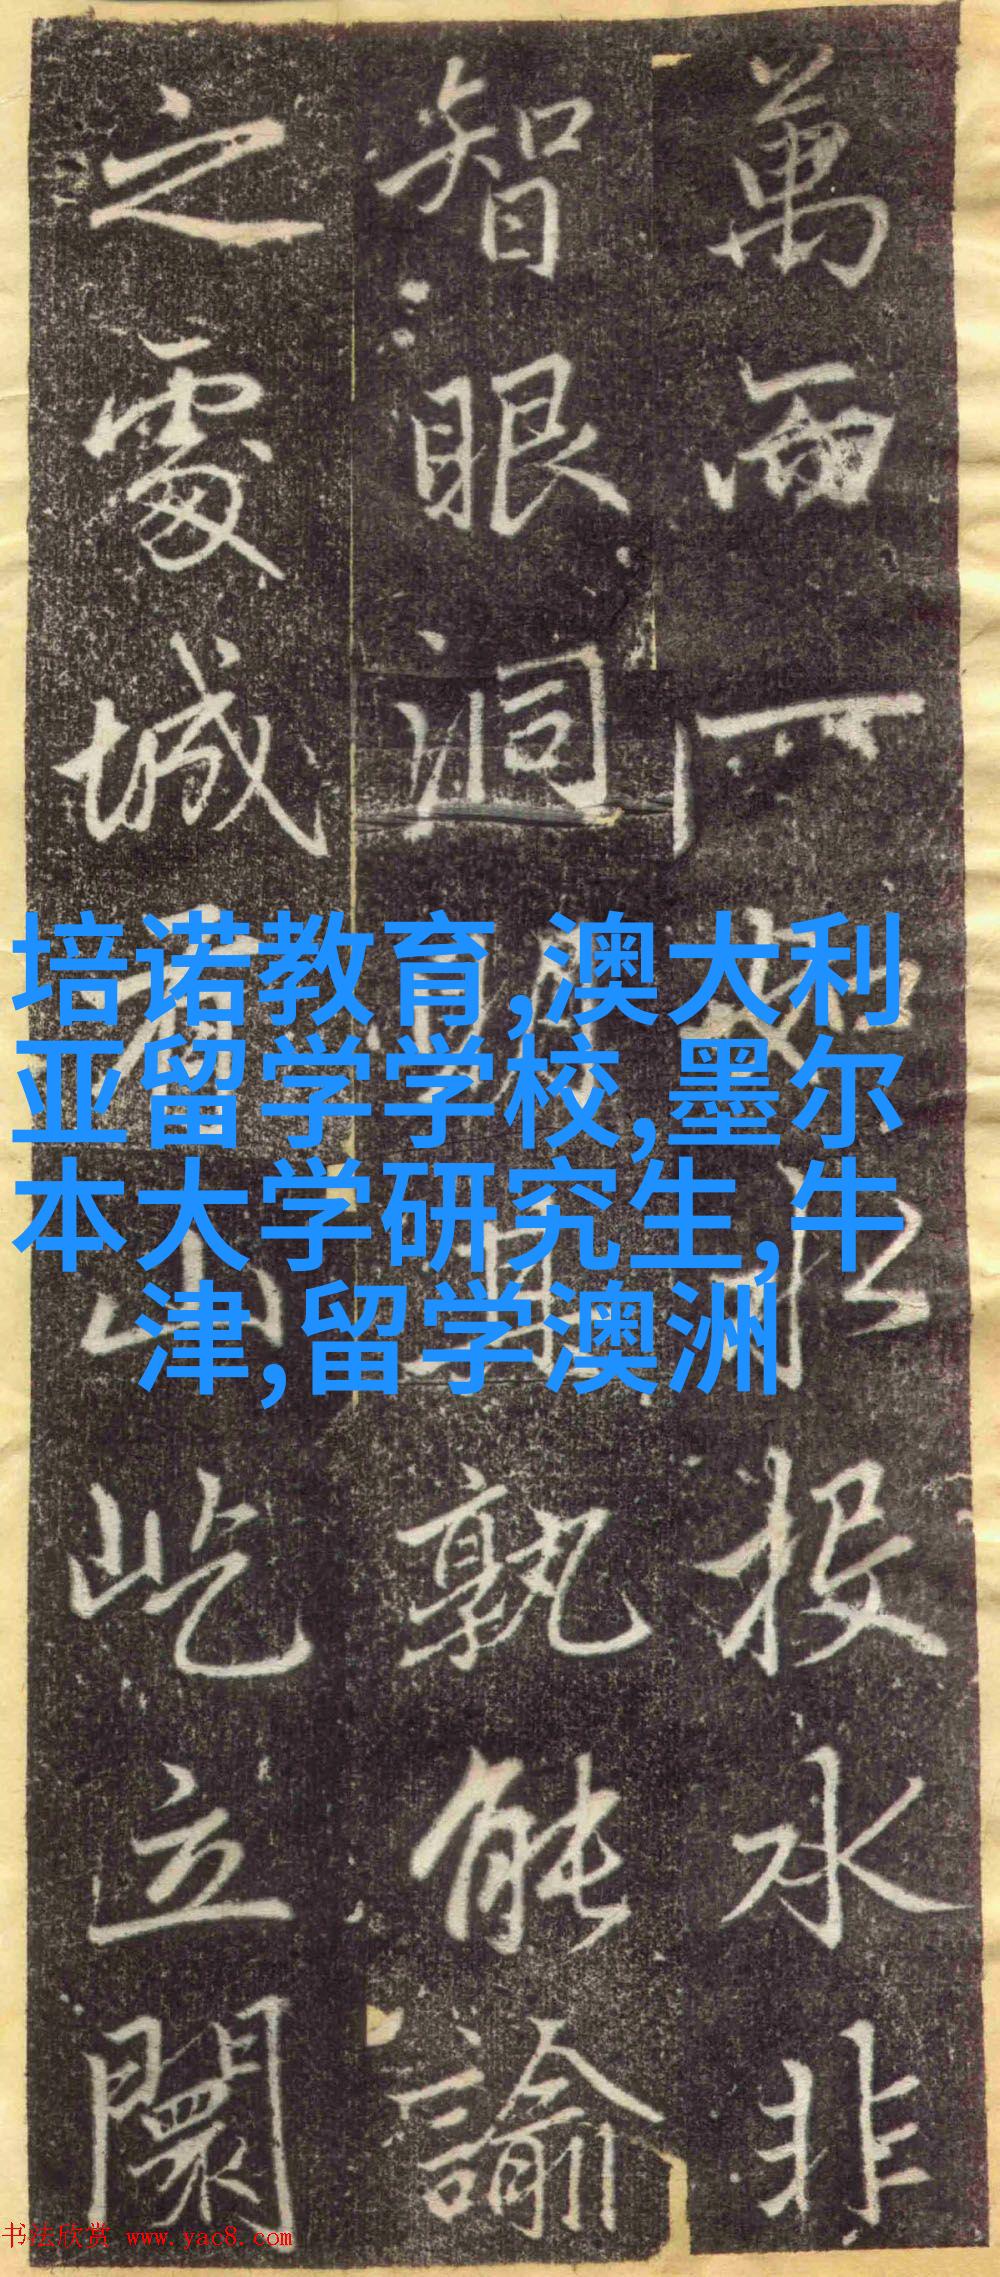 萬而
投水非
智眼洞
孰能諭
之處城
山屹立闤
培诺教育,澳大利
亚留学学校,墨尔
本大学研究生,牛
津,留学澳洲
书法欣赏 www.yac8.com